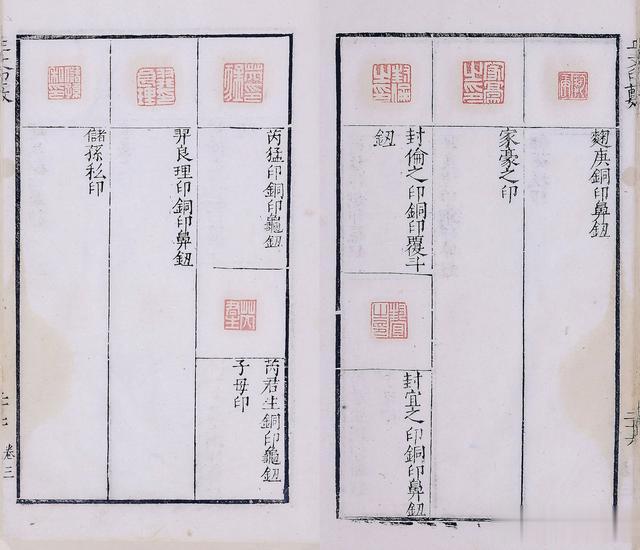 麹庚銅印鼻鈕
家豪之印
封倫之印銅印覆斗
鈕
封宜之印銅印鼻鈕
芮猛印銅印龜鈕
芮君生銅印龜鈕
子母印
羿良理印銅印鼻鈕
儲孫私印
卷三